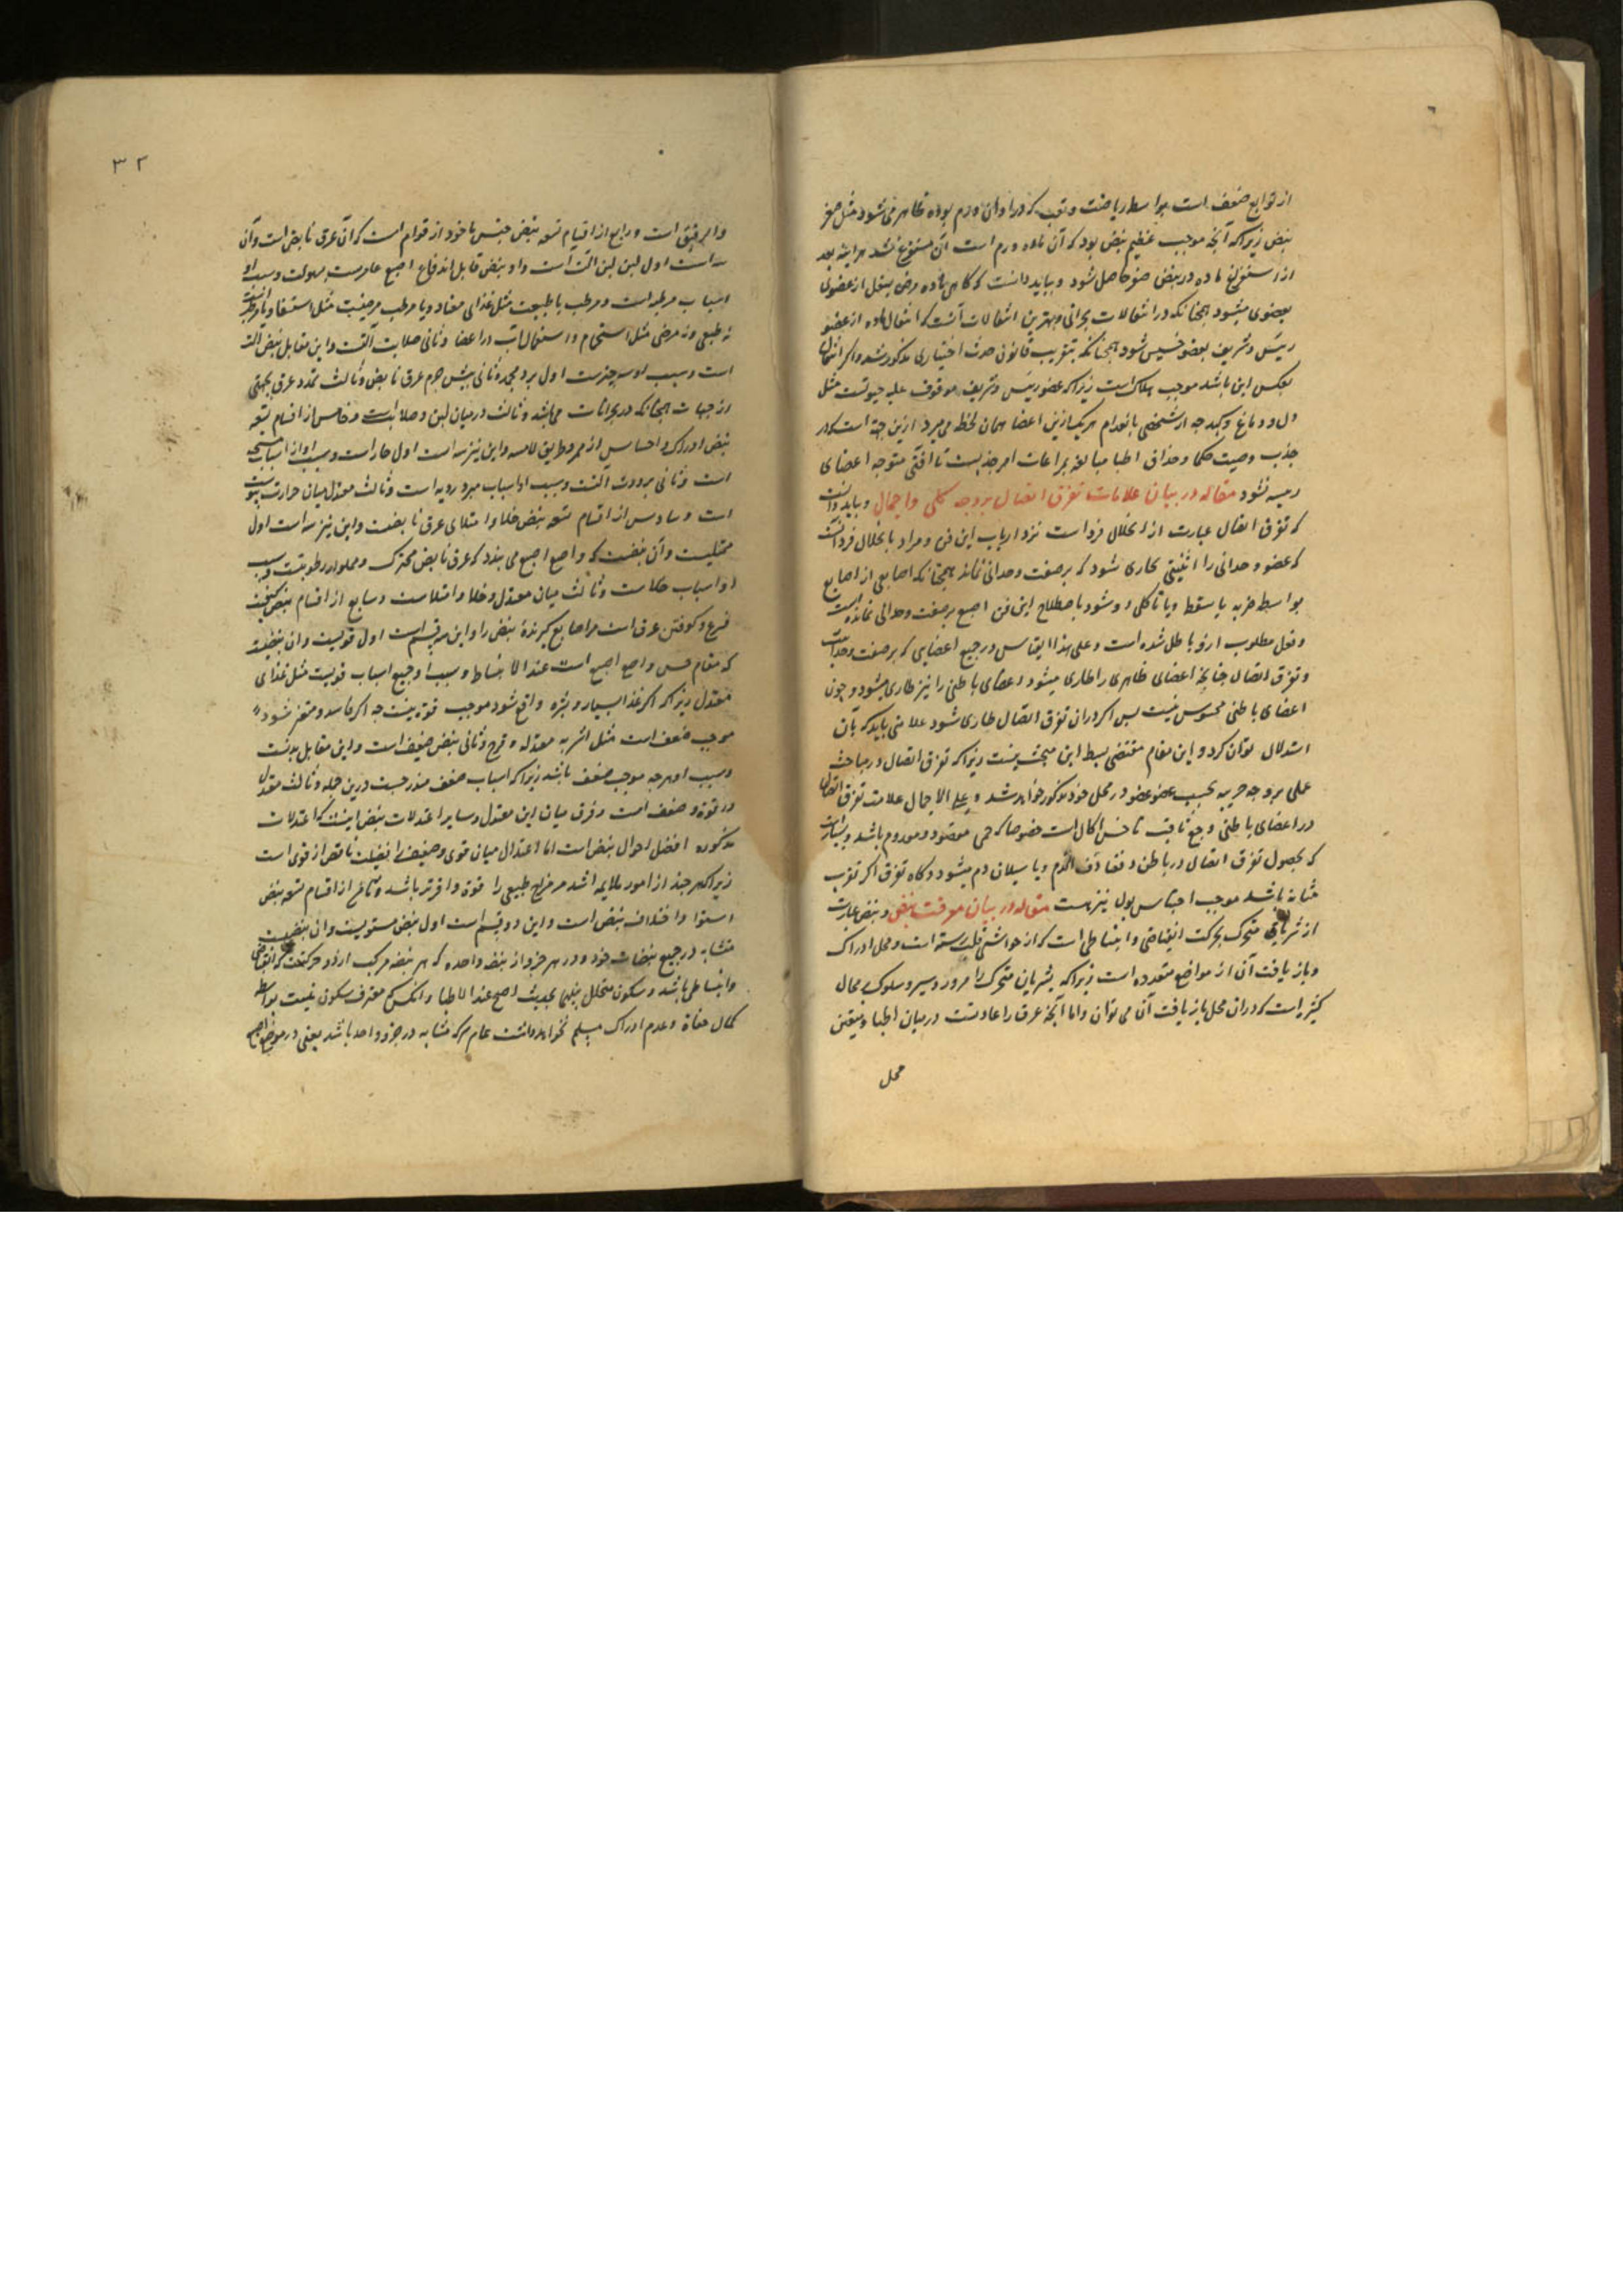 از توابع ضعف است بواسطه ریاضت و تعب که در اوان ورم بوده ظاهر می شود مثل صغر
نبض زیرا که آنچه موجب عظیم نبض بود که آن ماده ورم است آن مستفرغ شد هر اینه بعد
از استفراغ ماده در نبض صغر حاصل شود و بباید دانست که کاهی ماده مرض منتقل از عضوی
بعضوی میشود همچنانکه در انتقالات بحرانی و بهترین انتقالات آنست که انتقال ماده از عضو
رییس و شریف بعضو خسیس شود همچنانکه بتقریب قانون حدث اختیاری مذکور شد و اکر انتقال
بعکس این باشد موجب هلاکست زیرا که عضو رییس و شریف موقوف علیه حیوتست مثل
دل و دماغ و کبد جه از شخصی بانعدام هر یک ازین اعضا همان لحظه می میرد ازین جهة است که در
جذب وصیت حکما و حذاق اطبا مبالغه بمراعات امر جذبست تا آفتی متوجه اعضای
رییسه نشود مقاله در بیان علامات تفرق اتصال بر وجه کلی و اجمال و باید دانست
که تفرق اتصال عبارت از انحلال فرد است نزد ارباب این فن و مراد بانحلال فرد آنست
که عضو وحدانی را اثنینیتی طاری شود که بر صفت وحدانی نماند همچنانکه اصابعی از اصابع
بواسطه ضربه یا سقطه و یا تاکلی دو شود باصطلاح این فن اصبع بر صفت وحدانی نمانده است
و فعل مطلوب ازو باطل شده است و علی هذا القیاس در جمیع اعضایی که بر صفت وحدانیت
و تفرق اتصال چنانچه اعضای ظاهری را طاری میشود اعضای باطنی را نیز طاری میشود و چون
اعضای باطنی محسوس نیست بس اکر در آن تفرق اتصال طاری شود علامتی باید که بآن
استدلال توان کرد و این مقام مقتضی بسط این مبحث نیست زیرا که تفرق اتصال در مباحث
عملی بر وجه جزییه بحسب عضو عضو در محل خود مذکور خواهد شد و علی الاجمال علامت تفرق اتصال
در اعضای باطنی وجع ثاقب ناخس اکال است خصوصا که حمی مفقود و معدوم باشد و بسیارست
که بحصول تفرق اتصال در باطن نفث الدم و یا سیلان دم میشود و کاه تفرق اکر تفرق
مثانه باشد موجب احتباس بول نیز هست مقاله در بیان معرفت نبض و نبض عبارت
از شریانی متحرک بحرکت انقباضی و انبساطی است که از حواشی قلب رسته است و محل ادراک
و بازیافت آن از مواضع متعدده است زیرا که شریان متحرک را مرور و سیر و سلوک بمحال
کثیر است که در آن محل بازیافت آن می توان و اما آنچه عرف را عادتست در میان اطبا و متعین
محل
۳۲
و الرقیق است و رابع از اقسام تسعه نبض جنس ماخوذ از قوام است که آن عرق نابض است و آن
سه است اول لین لین آلت است و او نبض قابل اندفاع اصبع غامزست بسهولت و سبب او
اسباب مرطبه است و مرطب یا طبیعت مثل غذای معتاد و یا مرطب مرضیست مثل استسقا و یا مرطب
نه طبیعی و نه مرضی مثل استحمام و استعمال آب در اعضا و ثانی صلابت آلتست و این مقابل نبض آلت
است و سبب او سه چیزست اول برد مجمده ثانی یبس جرم عرق نابض و ثالث تمدد عرق بجهتی
از جهات همچنانکه در بحرانات می باشد و ثالث در میان لین و صلابتست و خامس از اقسام تسعه
نبض ادراک و احساس از ممر و طریق لامسه و این نیز سه است اول حار است و سبب او از اسباب مسخنه
است و ثانی برودت آلتست و سبب او اسباب مبرده رویه است و ثالث معتدل میان حرارت و برودت
است و سادس از اقسام تسعه نبض خلا و امتلای عرق نابضست و این نیز سه است اول
ممتلیست و آن نبضیست که واضع اصبع می بندد که عرق نابض متحرک و مملو از رطوبتست و سبب
او اسباب حکاست و ثالث میان معتدل و خلا و امتلاست و سابع از اقسام نبض کیفیت
قرع و کوفتن عرق است مر اصابع گیرنده نبض را و این سه قسم است اول قویست و آن نبضیست
که مقام حس واضع اصبع است عند الانبساط و سبب او جمیع اسباب قویست مثل غذای
معتدل زیرا که اکر غذا بسیار و بتره واقع شود موجب قوة نیست جه اکر فاسد و متغیر شود
موجب ضعف است مثل اشربه معتدله و فرح و ثانی نبض ضعیف است و این مقابل بدنست
و سبب او هرچه موجب ضعف باشد زیرا که اسباب ضعف مندرجست درین جمله و ثالث معتدل
در قوة و ضعف است و فرق میان این معتدل و سایر اعتدلات نبض اینست که اعتدلات
مذکوره افضل احوال نبض است اما اعتدال میان قوی و ضعیف را فضیلت ناقص از قوی است
زیرا که هرچند از امور ملایمه اشد مر مزاج طبیعی را قوة وافرتر باشد و تاسع از اقسام تسعه نبض
استوا و اختلاف نبض است و این دو قسم است اول نبض مستویست و آن نبضیست
متشابه در جمیع نبضات خود و در هر جزو از نبضه واحده که هر نبضه مرکب از دو حرکتست که انقباضی
و انبساطی باشد و سکون متخلل بینهما بحدیث اصح عند الاطبا و آنکس که معترف سکون نیست بواسطه
کمال خفاة و عدم ادراک مسلم نخواهد داشت عام هرکه متشابه در جزو واحد باشد یعنی در موضع اصبع